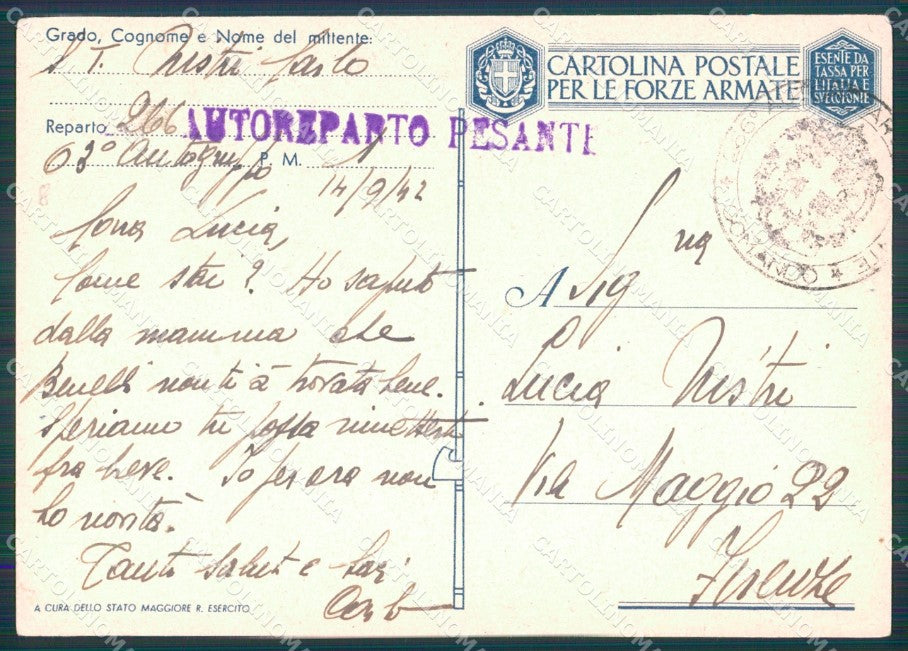 Grado, Cognome e Nome del mittente:
S. T. Nistri Carlo
Reparto 266 AUTOREPARTO PESANTE
63° Autogruppo P. M. 1
14/9/42
Cara Lucia,
Come stai? Ho saputo
dalla mamma che
Benelli non ti à trovata bene.
Speriamo tu possa rimetterti
fra breve. Io per ora non
ho novità.
Tanti saluti e baci
Carlo
A CURA DELLO STATO MAGGIORE R. ESERCITO
CARTOLINA POSTALE
PER LE FORZE ARMATE
ESENTE DA
TASSA PER
L'ITALIA E
SVE COLONIE
COMANDO
A Sig.na
Lucia Nistri
Via Maggio 22
Firenze
CARTOLINOMANIA